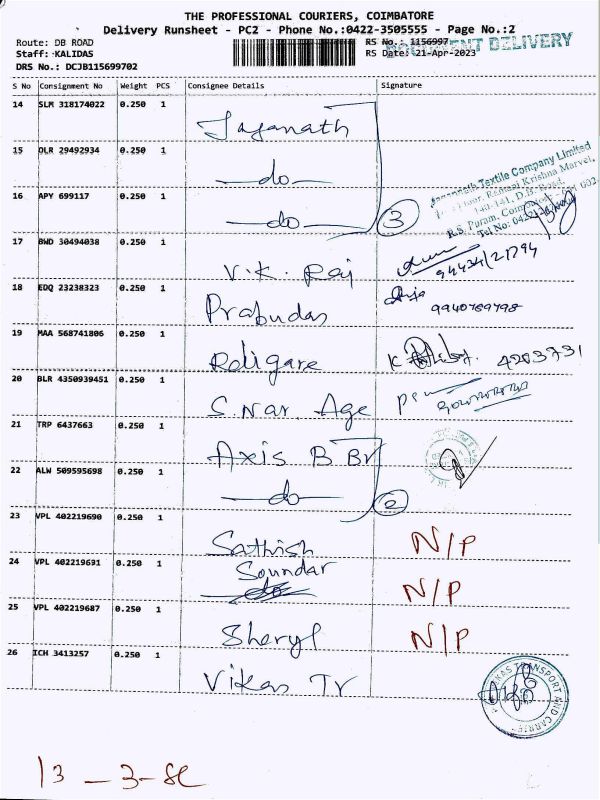 THE PROFESSIONAL COURIERS, COIMBATORE
Delivery Runsheet - PC2 - Phone No.:0422-3505555 - Page No.:2
Route: DB ROAD
Staff:KALIDAS
DRS No.: DCJB115699702
RS No.: 1156997
RS Date: 21-Apr-2023
DELIVERY
S No Consignment No Weight PCS Consignee Details Signature
14 SLM 318174022 0.250 1 Jaganath
15 DLR 29492934 0.250 1 do
16 APY 699117 0.250 1 do 3
Textile Company Limited
Krishna Marvel,
140-141, D.B. Road,
R.S. Puram,
Tel No:
17 BWD 30494038 0.250 1 V.K. Raj
18 EDQ 23238323 0.250 1 Prabudas 9940789798
19 MAA 568741806 0.250 1 Religare K 4203731
20 BLR 4350939451 0.250 1 S. Nar. Age
21 TRP 6437663 0.250 1 Axis B Br
22 ALW 509595698 0.250 1 do 2
23 VPL 402219690 0.250 1 Sathish N/P
24 VPL 402219691 0.250 1 Soundar N/P
25 VPL 402219687 0.250 1 Sheryl N/P
26 ICH 3413257 0.250 1 Vikas Tr
TRANSPORT AND
13 - 3 -